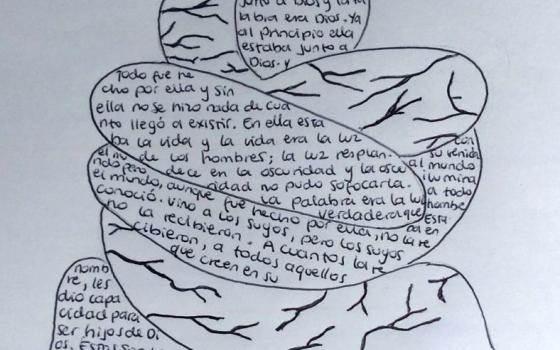 junto a Dios y la Pa
labra era Dios. Ya
al principio ella
estaba junto a
Dios. Y
Todo fue he
cho por ella y sin
ella no se hizo nada de cua
nto llegó a existir. En ella esta
ba la vida y la vida era la luz
de los hombres; la luz resplan-
dece en la oscuridad y la oscu
ridad no pudo sofocarla.
La palabra era la luz
verdadera que
con
su venida
al mundo
ilumina
a todo
hombre
Esta
ba en
el mu
ndo pero
el mundo, aunque fue hecho por ella, no la re
conoció. Vino a los suyos, pero los suyos
no la recibieron. A cuantos la re
cibieron, a todos aquellos
que creen en su
nomb
re, les
dio capa
cidad para
ser hijos de Di
os.